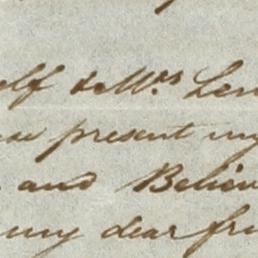 elf & Mrs Len
ase present my
and Believ
my dear fri